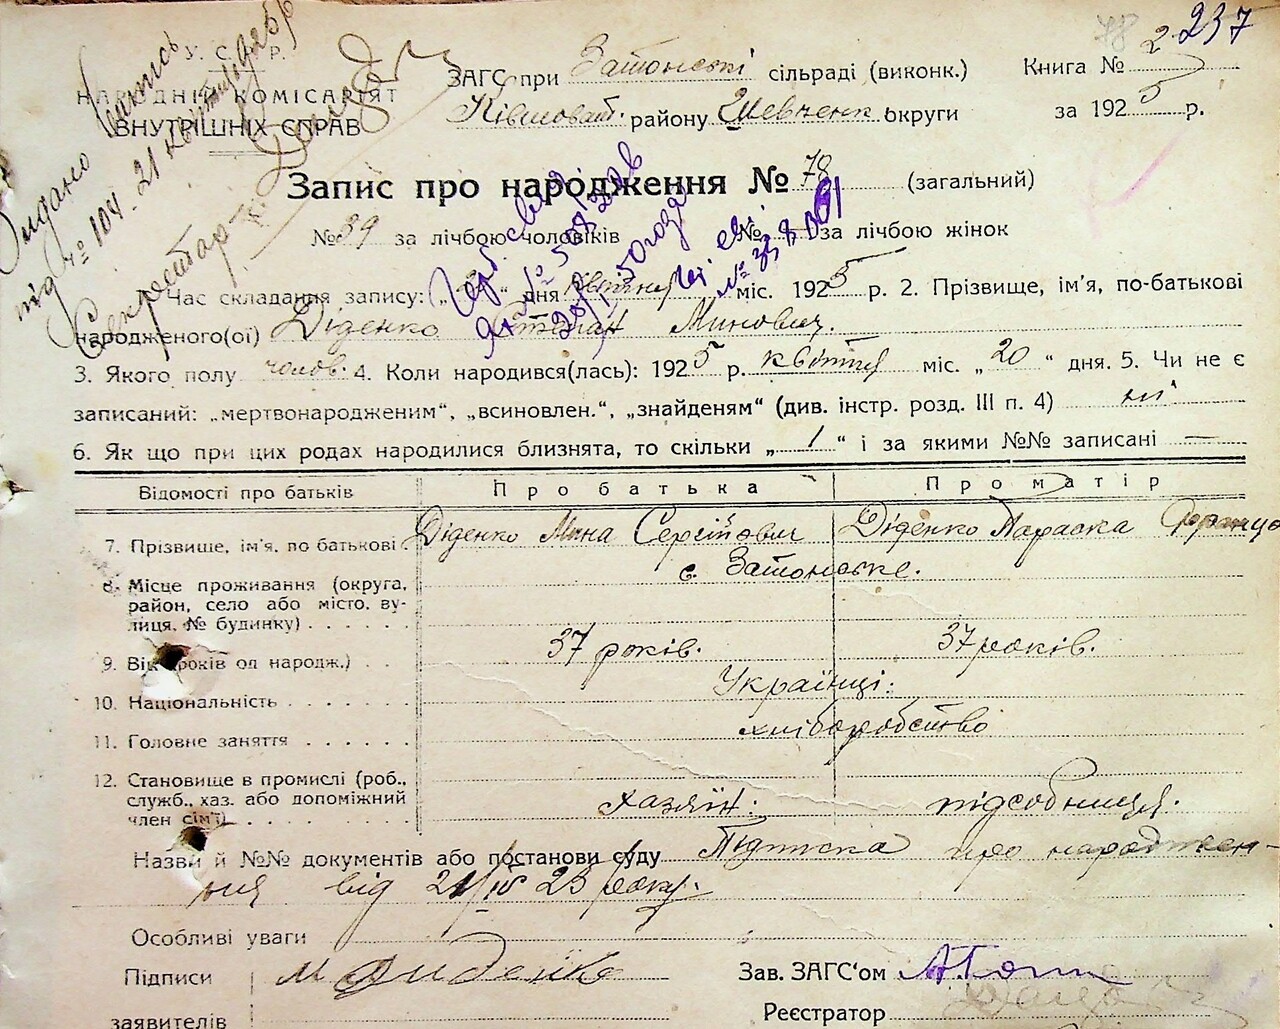 237
78 2
У. С. Р. Р.
НАРОДНІЙ КОМІСАР'ЯТ
ВНУТРІШНІХ СПРАВ
Видано витпись
під № 104. 21
Секретар
ЗАГС при Затонські сільраді (виконк.) Книга № 2
Ківшоват. району Шевченк. округи за 1925 р.
Запис про народження № 78 (загальний)
№ 39 за лічбою чоловіків № за лічбою жінок
Час складання запису: „ “ дня квітня міс. 1925 р. 2. Прізвище, ім'я, по-батькові
народженого(ої) Діденко Степан Минович.
3. Якого полу чолов. 4. Коли народився(лась): 1925 р. квітня міс. „20“ дня. 5. Чи не є
записаний: „мертвонародженим“, „всиновлен.“, „знайденям“ (див. інстр. розд. III п. 4) ні
6. Як що при цих родах народилися близнята, то скільки „1“ і за якими №№ записані —
Відомості про батьків Про батька Про матір
7. Прізвище, ім'я, по батькові Діденко Мина Сергійович Діденко Параска
8. Місце проживання (округа, район, село або місто, вулиця, № будинку) с. Затонське.
9. Вік (років од народж.) 37 років. 37 років.
10. Національність Українці.
11. Головне заняття хліборобство
12. Становище в промислі (роб., служб., хаз. або допоміжний член сім'ї) хазяїн: підсобниця.
Назви й №№ документів або постанови суду Підписка про народжен-
ня від 21/IV 25 року.
Особливі уваги
Підписи М Диденко Зав. ЗАГС'ом
заявителів Реєстратор